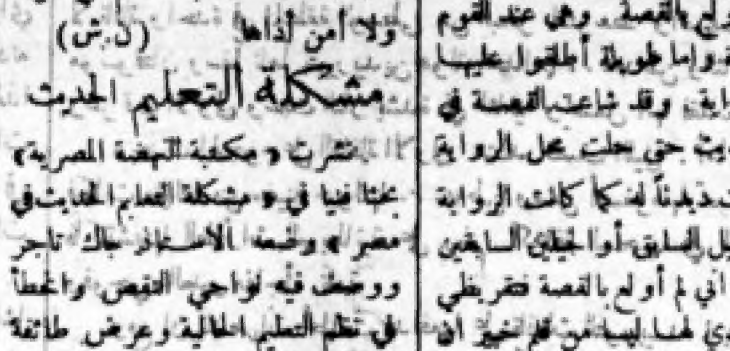 ولع بالقصة وهي عند القوم
واما طويلة أطلقوا عليها
وقد شاعت القصة في
حتى حلت محل الرواية
كما كانت الرواية
السابق أو الجيلين السابقين
اني لم أولع بالقصة فتقريظي
لها ليس من قلم خبير ان
ولا أمن أذاها (ل.ش)
مشكلة التعليم الحديث
نشرت « مكتبة النهضة المصرية »
بحثا فنيا في « مشكلة التعليم الحديث في
مصر » وضعه الاستاذ جاك تاجر
ووصف فيه نواحي النقص والخطأ
في نظم التعليم الحالية وعرض طائفة